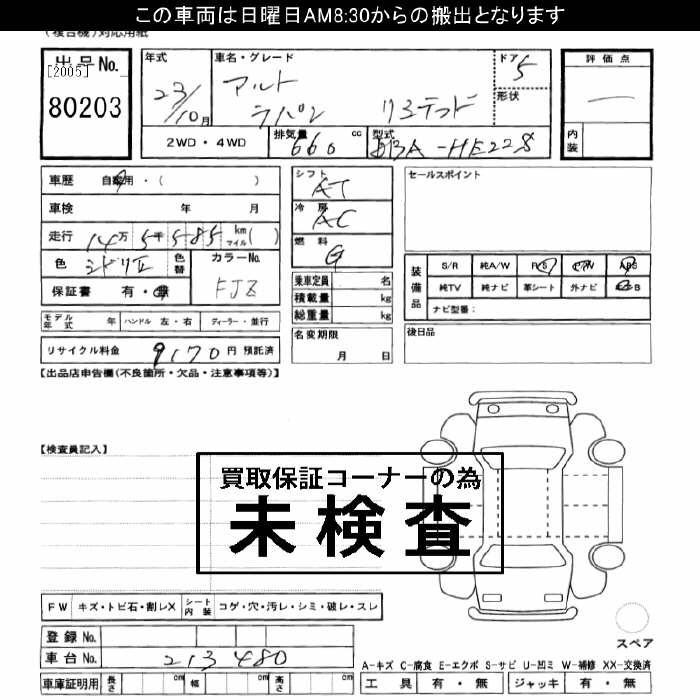 この車両は日曜日AM8:30からの搬出となります
(複合機)対応用紙
出品No.
[2005]
80203
年式
23/10月
車名・グレード
アルト
ラパン リミテッド
ドア 5
形状
2WD・4WD
排気量 660 cc
型式 DBA-HE22S
評価点
内装
車歴 自家用・( )
車検 年 月
走行 14万 5千 585 km マイル( )
色 ミドリⅡ 色替
カラーNo. FJZ
保証書 有・無
モデル年式 年 ハンドル 左・右 ディーラー・並行
リサイクル料金 9170円 預託済
シフト AT
冷房 AC
燃料 G
乗車定員 名
積載量 kg
総重量 kg
名変期限
月 日
セールスポイント
装備品
S/R 純A/W P/S P/W ABS
純TV 純ナビ 革シート 外ナビ
ナビ型番:
後日品
【出品店申告欄(不良箇所・欠品・注意事項等)】
【検査員記入】
買取保証コーナーの為
未検査
FW キズ・トビ石・割レX シート内装 コゲ・穴・汚レ・シミ・破レ・スレ
登録No.
車台No. 213480
車庫証明用 長さ cm 幅 cm 高さ cm
スペア
A-キズ C-腐食 E-エクボ S-サビ U-凹ミ W-補修 XX-交換済
工具 有・無 ジャッキ 有・無